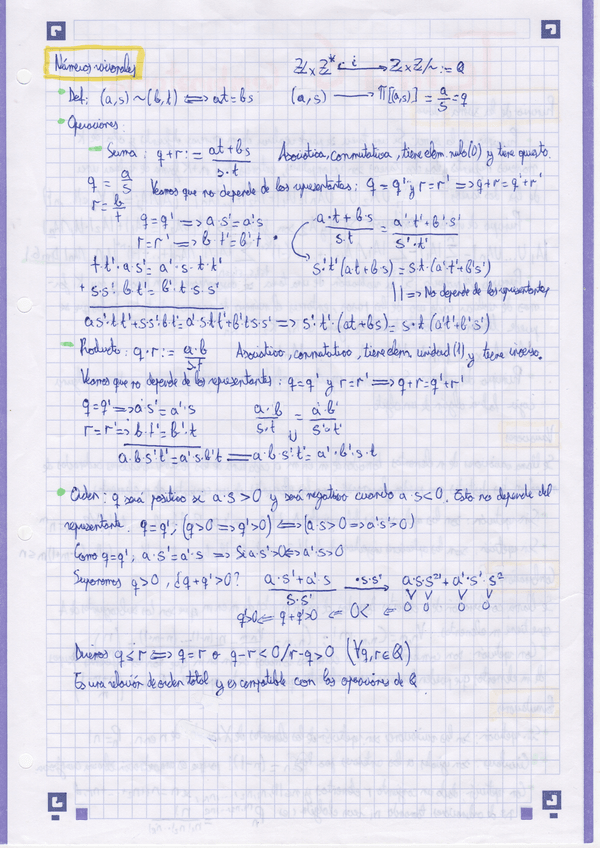 Números racionales
ℤ×ℤ* —i→ ℤ×ℤ/∼ := ℚ
Def: (a,s)∼(b,t) ⟺ at=bs (a,s) ⟶ Π[(a,s)] = a/s = q
Operaciones:
Suma: q+r := (at+bs)/(s·t) Asociativa, conmutativa, tiene elem. nulo(0) y tiene opuesto.
q = a/s Veamos que no depende de los representantes: q=q' y r=r' ⟹ q+r=q'+r'
r = b/t
q=q' ⟹ a·s'=a's (a·t+b·s)/(s·t) = (a'·t'+b'·s')/(s'·t')
r=r' ⟹ b t'=b'·t
t·t'·a·s'=a'·s·t·t' s't'(at+bs)=s·t·(a't'+b's')
+ s·s'·b·t'=b'·t·s·s' || ⟹ No depende de los representantes
as'·tt'+s·s'·bt'=a's·tt'+b't·s·s' ⟹ s'·t'·(at+bs)=s·t(a't'+b's')
Producto: q·r := (a·b)/(s·t) Asociativo, conmutativo, tiene elem. unidad(1) y tiene inverso.
Veamos que no depende de los representantes: q=q' y r=r' ⟹ q+r=q'+r'
q=q' ⟹ a·s'=a'·s (a·b)/(s·t) = (a'·b')/(s'·t')
r=r' ⟹ b·t'=b'·t ⇓
a·b·s't'=a's·b't ⟸ a·b·s'·t'=a'·b'·s·t
Orden: q será positivo si a·s>0 y será negativo cuando a·s<0. Esto no depende del
representante. q=q'; (q>0 ⟹ q'>0) ⟺ (a·s>0 ⟹ a's'>0)
Como q=q', a·s'=a'·s ⟹ Si a·s'>0 ⟺ a'·s>0
Suponemos q>0, ¿q+q'>0? (a·s'+a's)/(s·s') —·s·s'→ a·s·s'²+a'·s'·s²
q'>0 ⟸ q+q'>0 ⟸ 0< ⟸ 0 0 0 0
Diremos q≤r ⟺ q=r o q-r<0/r-q>0 (∀q,r∈ℚ)
Es una relación de orden total y es compatible con las operaciones de ℚ